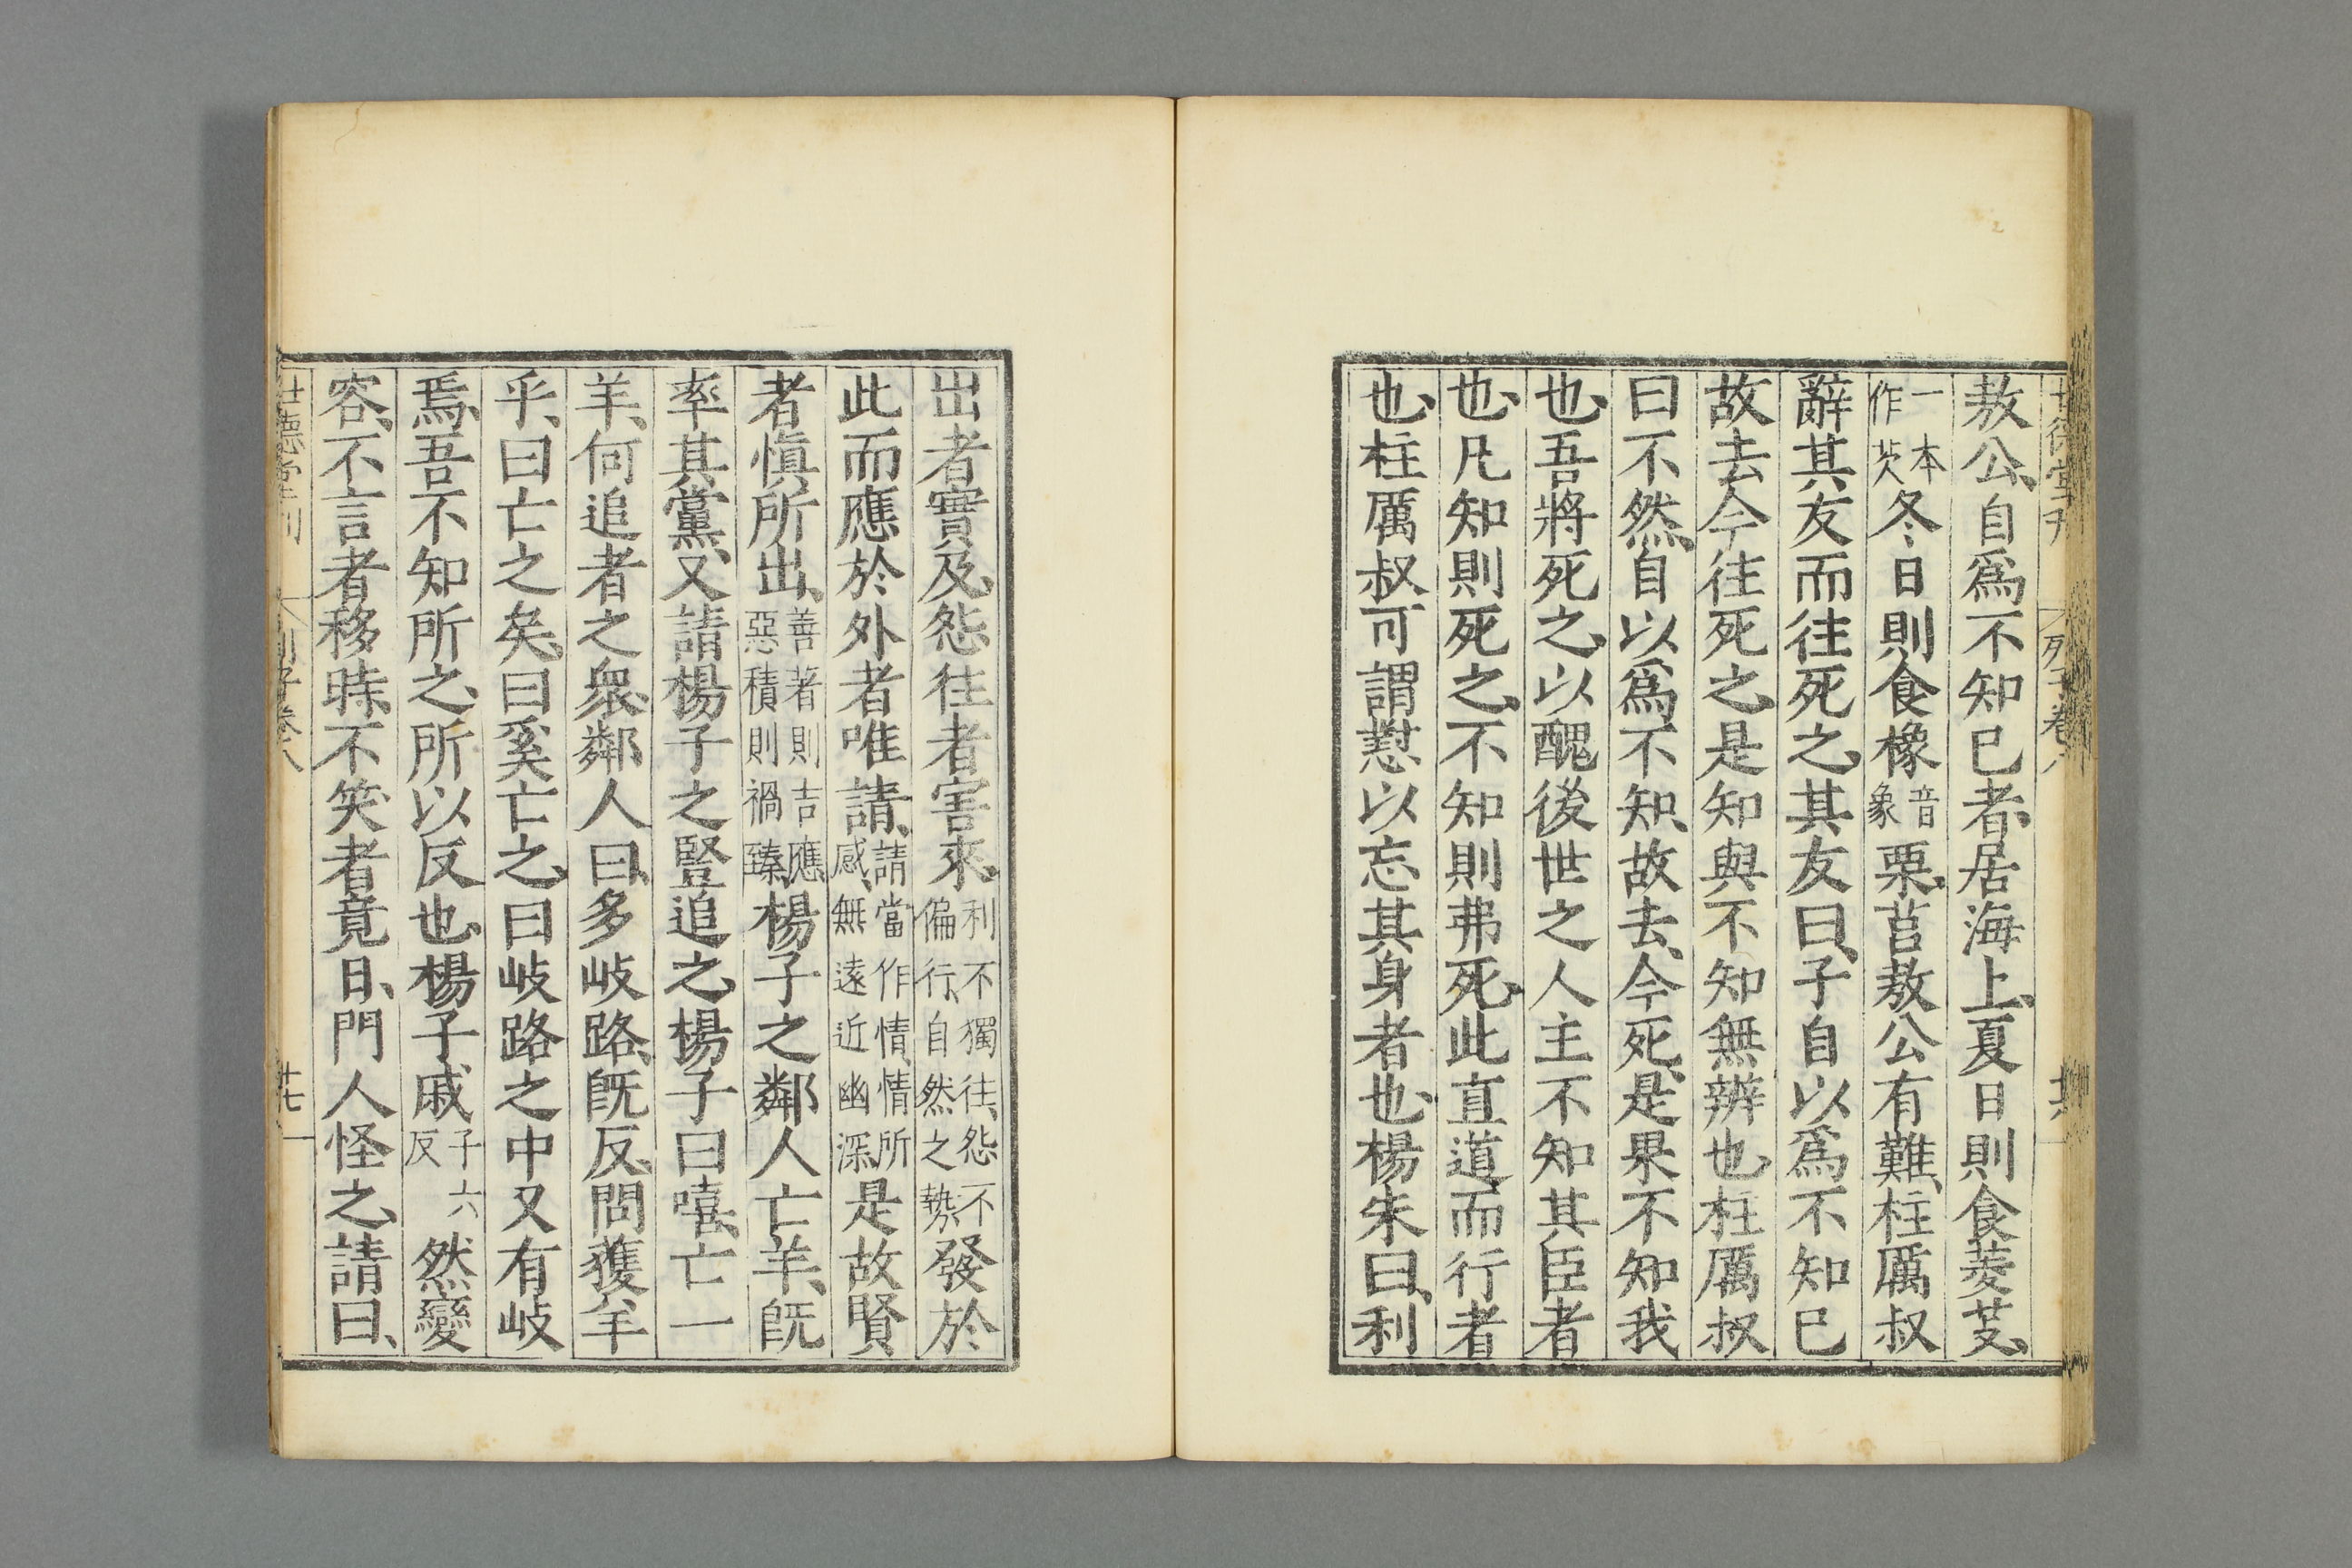 敖公、自爲不知已者、居海上、夏日則食菱芰、
一本作芡冬日則食橡音象栗、莒敖公有難、柱厲叔
辭其友而往死之、其友曰、子自以爲不知已
故去今往死之、是知與不知無辨也柱厲叔
曰不然、自以爲不知、故去、今死、是果不知我
也、吾將死之、以醜後世之人主不知其臣者
也、凡知則死之、不知則弗死、此直道而行者
也、柱厲叔可謂懟以忘其身者也、楊朱曰、利
出者實及、怨往者害來、利不獨往、怨不偏行、自然之勢發於
此而應於外者唯請、請當作情、情所感、無遠近幽深是故賢
者慎所出、善著則吉應惡積則禍臻楊子之鄰人亡羊、既
率其黨、又請楊子之豎追之、楊子曰嘻、亡一
羊、何追者之衆、鄰人曰、多岐路、既反、問獲羊
乎、曰亡之矣、曰奚亡之、曰岐路之中又有岐
焉、吾不知所之、所以反也、楊子戚子六反然變
容、不言者移時、不笑者竟日、門人怪之、請曰、
列子卷八